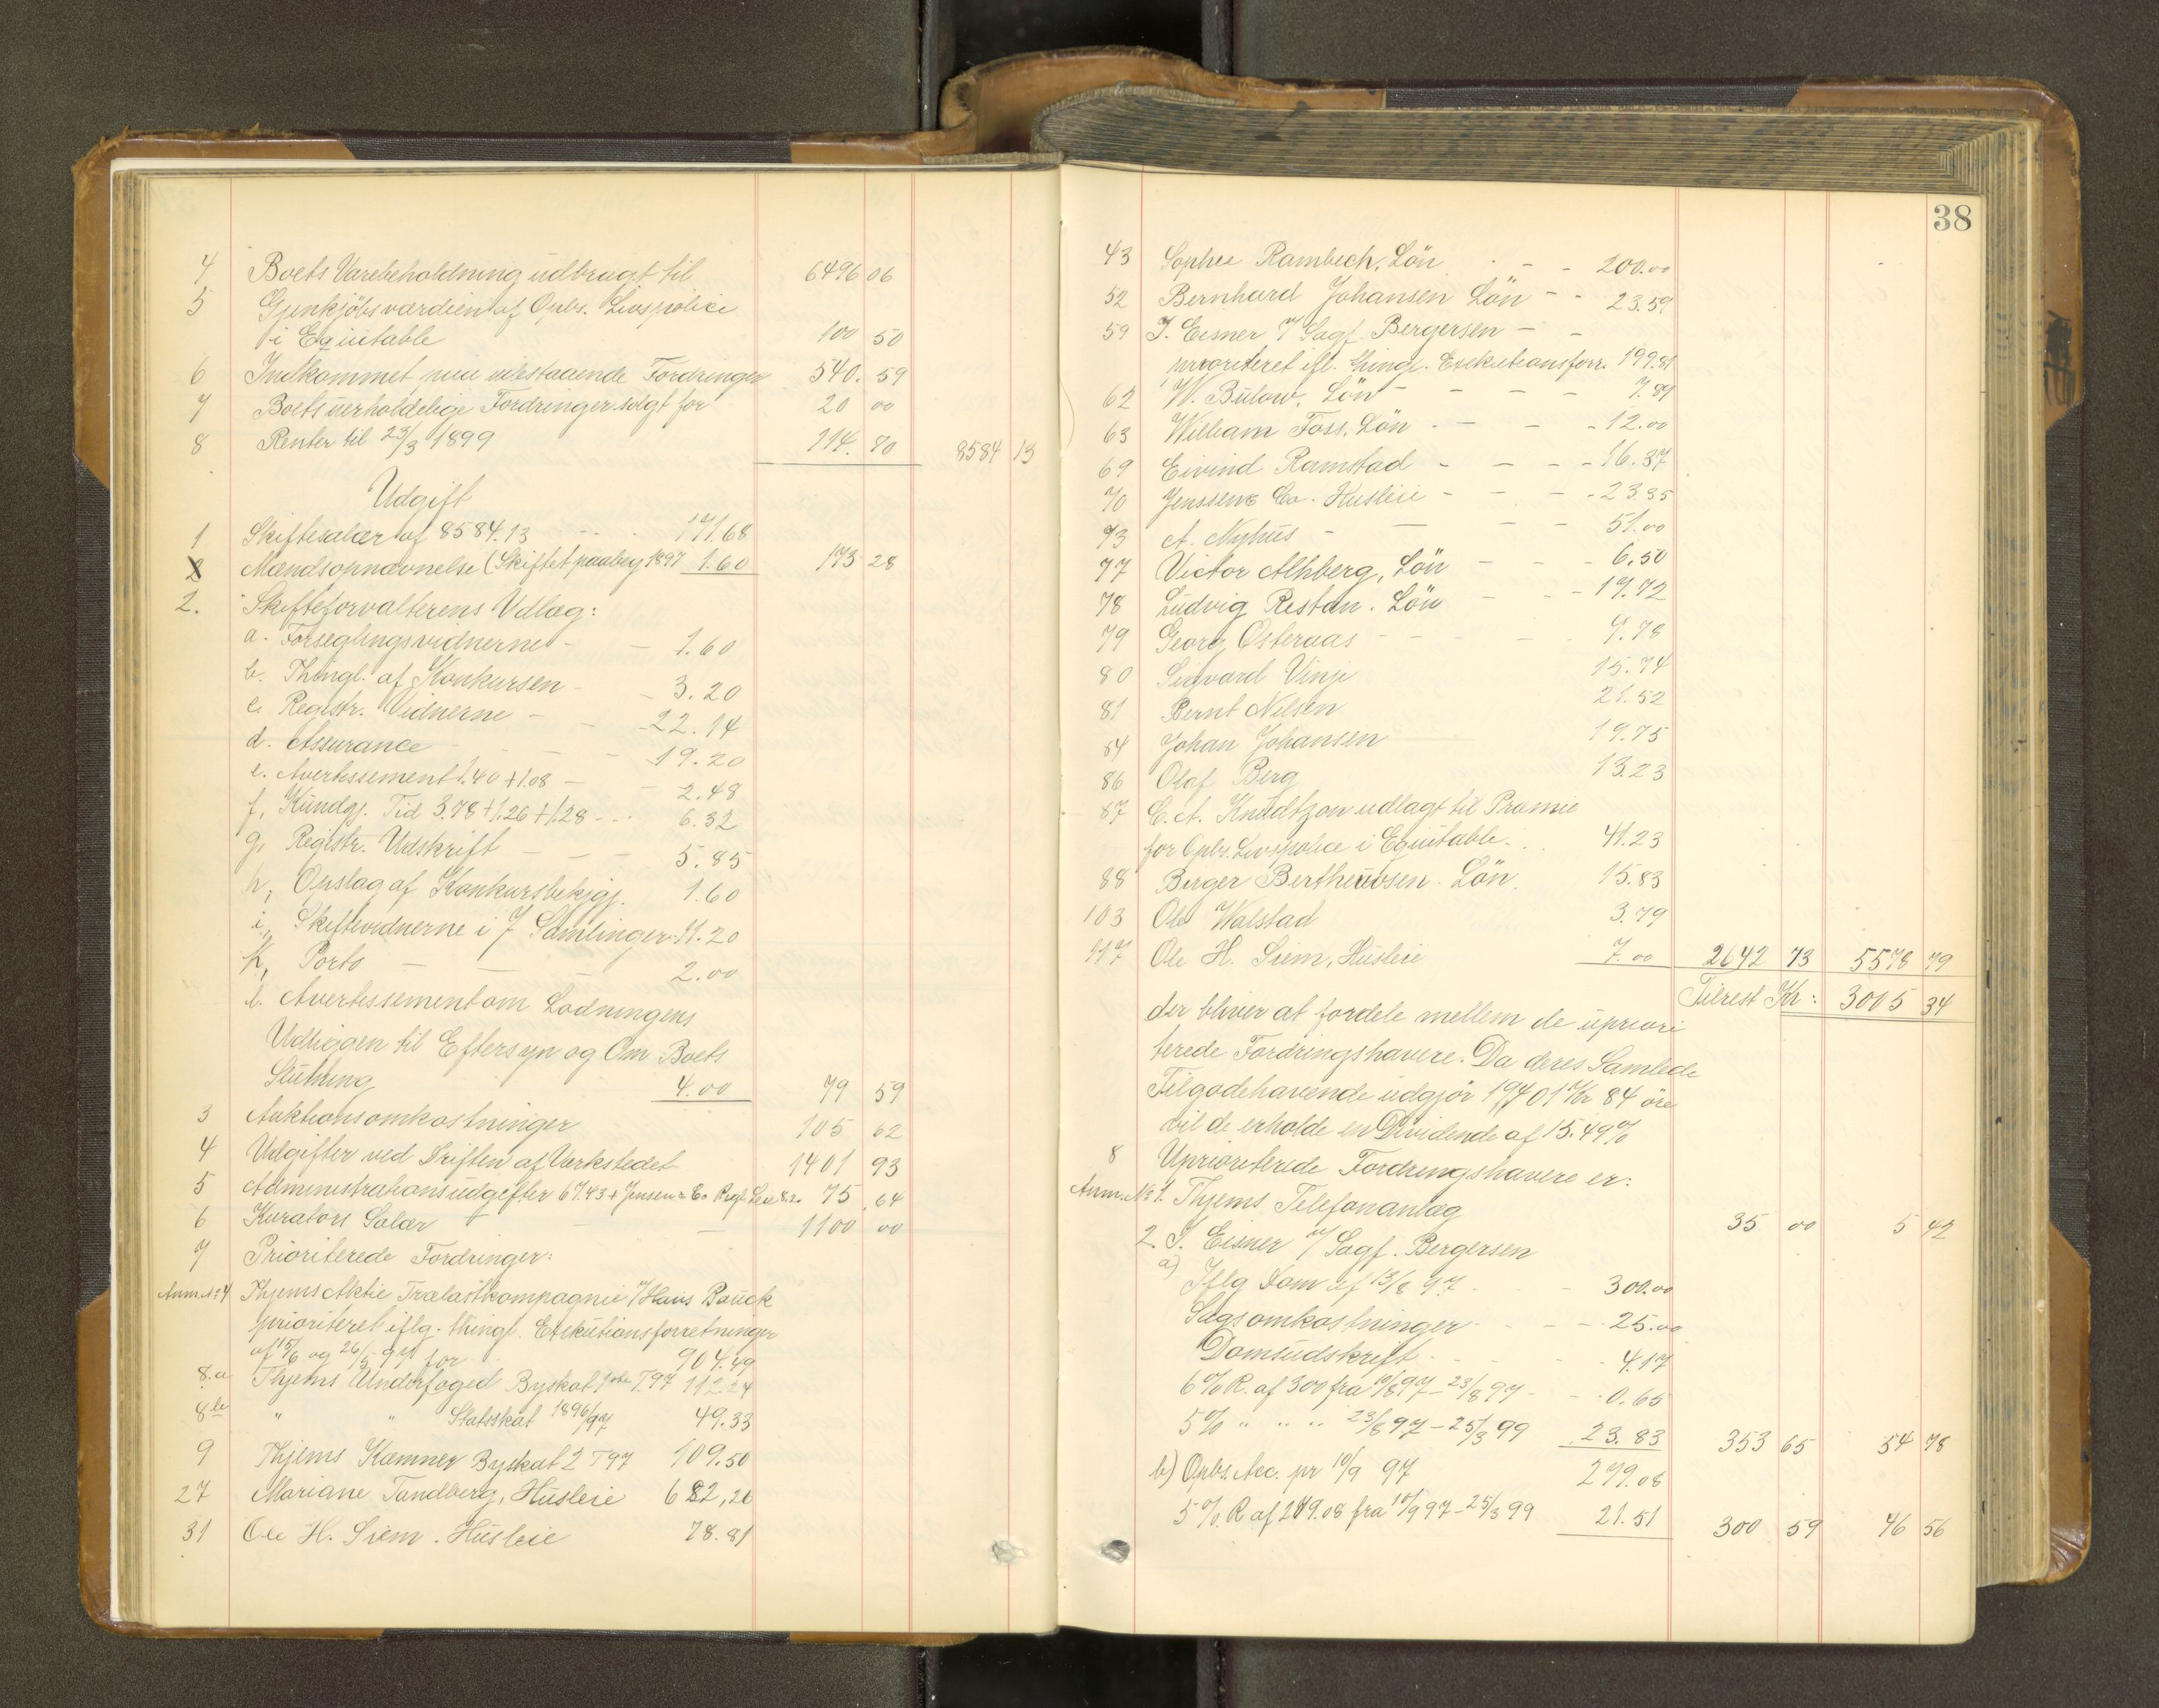 4 Boets Varebeholdning udbragt til 6496 06
5 Gjenkjöbsværdien af Opbs. Livspolice
i Equitable 100 50
6 Indkommet udestaaende Fordringer 540. 59
7 Boets uerholdelige Fordringer solgt for 20 00
8 Renter til 23/3 1899 114. 80 8584 13
Udgift
1 Skiftesalær af 8584.13 - - . 171.68
2 Mandsopnævnelse (Skiftet paabeg 1897 1.60 173 28
2. Skifteforvalterens Udlæg:
a. Forseglingsvidnerne - - 1.60
b. Thingl. af Konkursen - - 3.20
c. Registr. Vidnerne - - 22.14
d. Assurance - - - 19.20
e. Avertissement 1.40 + 1.08 - - 2.48
f, Kundgj. Tid 3.78 + 1.26 + 1.28 - - . 6.32
g, Registr. Udskrift - - - 5.85
h, Opslag af Konkursbekjgj. 1.60
i, Skiftevidnerne i 7 Samlinger 11.20
k, Porto - - - 2.00
l. Avertissement om Lodningens
Udliggen til Eftersyn og Om Boets
Slutning 4.00 79 59
3 Auktionsomkostninger 105 62
4 Udgifter ved Driften af Værkstedet 1401 93
5 Administrationsudgifter 67.43 + Jensen & Co Regf. Leie 8.20 75 64
6 Kurators Salær - - 1100 00
7 Prioriterede Fordringer:
Anm. No 4 Thjems Aktie Trælastkompagnie v/ Hans Bauck
prioriteret iflg. thingl. Exekutionsforretninger
af 15/6 og 26/5 97 for 904.49
8.a Thjems Underfoged Byskat 1ste T. 97 112.24
8b " " Statsskat 1896/97 49.33
9 Thjems Kæmner Byskat 2 T 97 109.50
27 Mariane Tandberg, Husleie 682,26
31 Ole H. Siem. Husleie 78.81
38
43 Sophie Rambech, Lön . - - 200.00
52 Bernhard Johansen Lön - - 23.59
59 I. Eisner v/ Sagf. Bergersen - -
prioriteret ifl. thingl. Exekutionsforr. 199.81
62 W. Bülow, Lön - - - - 7.89
63 William Foss, Lön . - - - 12.00
69 Eivind Ramstad - - - - 16.37
70 Jenssen & Co. Husleie - - - - 23.35
73 A. Nyhus - - - - 51.00
77 Victor Ahlberg, Lön - - - 6.50
78 Ludvig Restan. Lön - - - 19.72
79 Georg Osteraas - - - - 9.78
80 Sigvard Vinje 15.74
81 Bernt Nilsen 21.52
84 Johan Johansen 19.75
86 Olaf Berg 13.23
87 C. A. Knudtzon udlagt til Præmie
for Opbs. Livspolice i Equitable. . . 41.23
88 Birger Bertheussen. Lön. 15.83
103 Ole Walstad 3.79
117 Ole H. Siem, Husleie 7.00 2642 73 5578 79
Tilrest Kr: 3005 34
der bliver at fordele mellem de upriori
terede Fordringshavere. Da deres Samlede
Tilgodehavende udgjör 19401 Kr 84 öre
vil de erholde en Dividende af 15.49%
8 Uprioriterede Fordringshavere er:
Anm. No 1. Thjems Telefonanlæg 35 00 5 42
2. I. Eisner v/ Sagf. Bergersen
a) Iflg Dom af 13/8 97 . - 300.00
Sagsomkostninger - - - 25.00
Domsudskrift . - - - 4.17
6% R. af 300 fra 10/8 97 - 23/8 97 - - 0.65
5% " " " 23/8 97 - 25/3 99 23.83 353 65 54 78
b) Opbs. Acc. pr 10/9 97 279.08
5% R af 279.08 fra 10/9 97 - 25/3 99 21.51 300 59 46 56